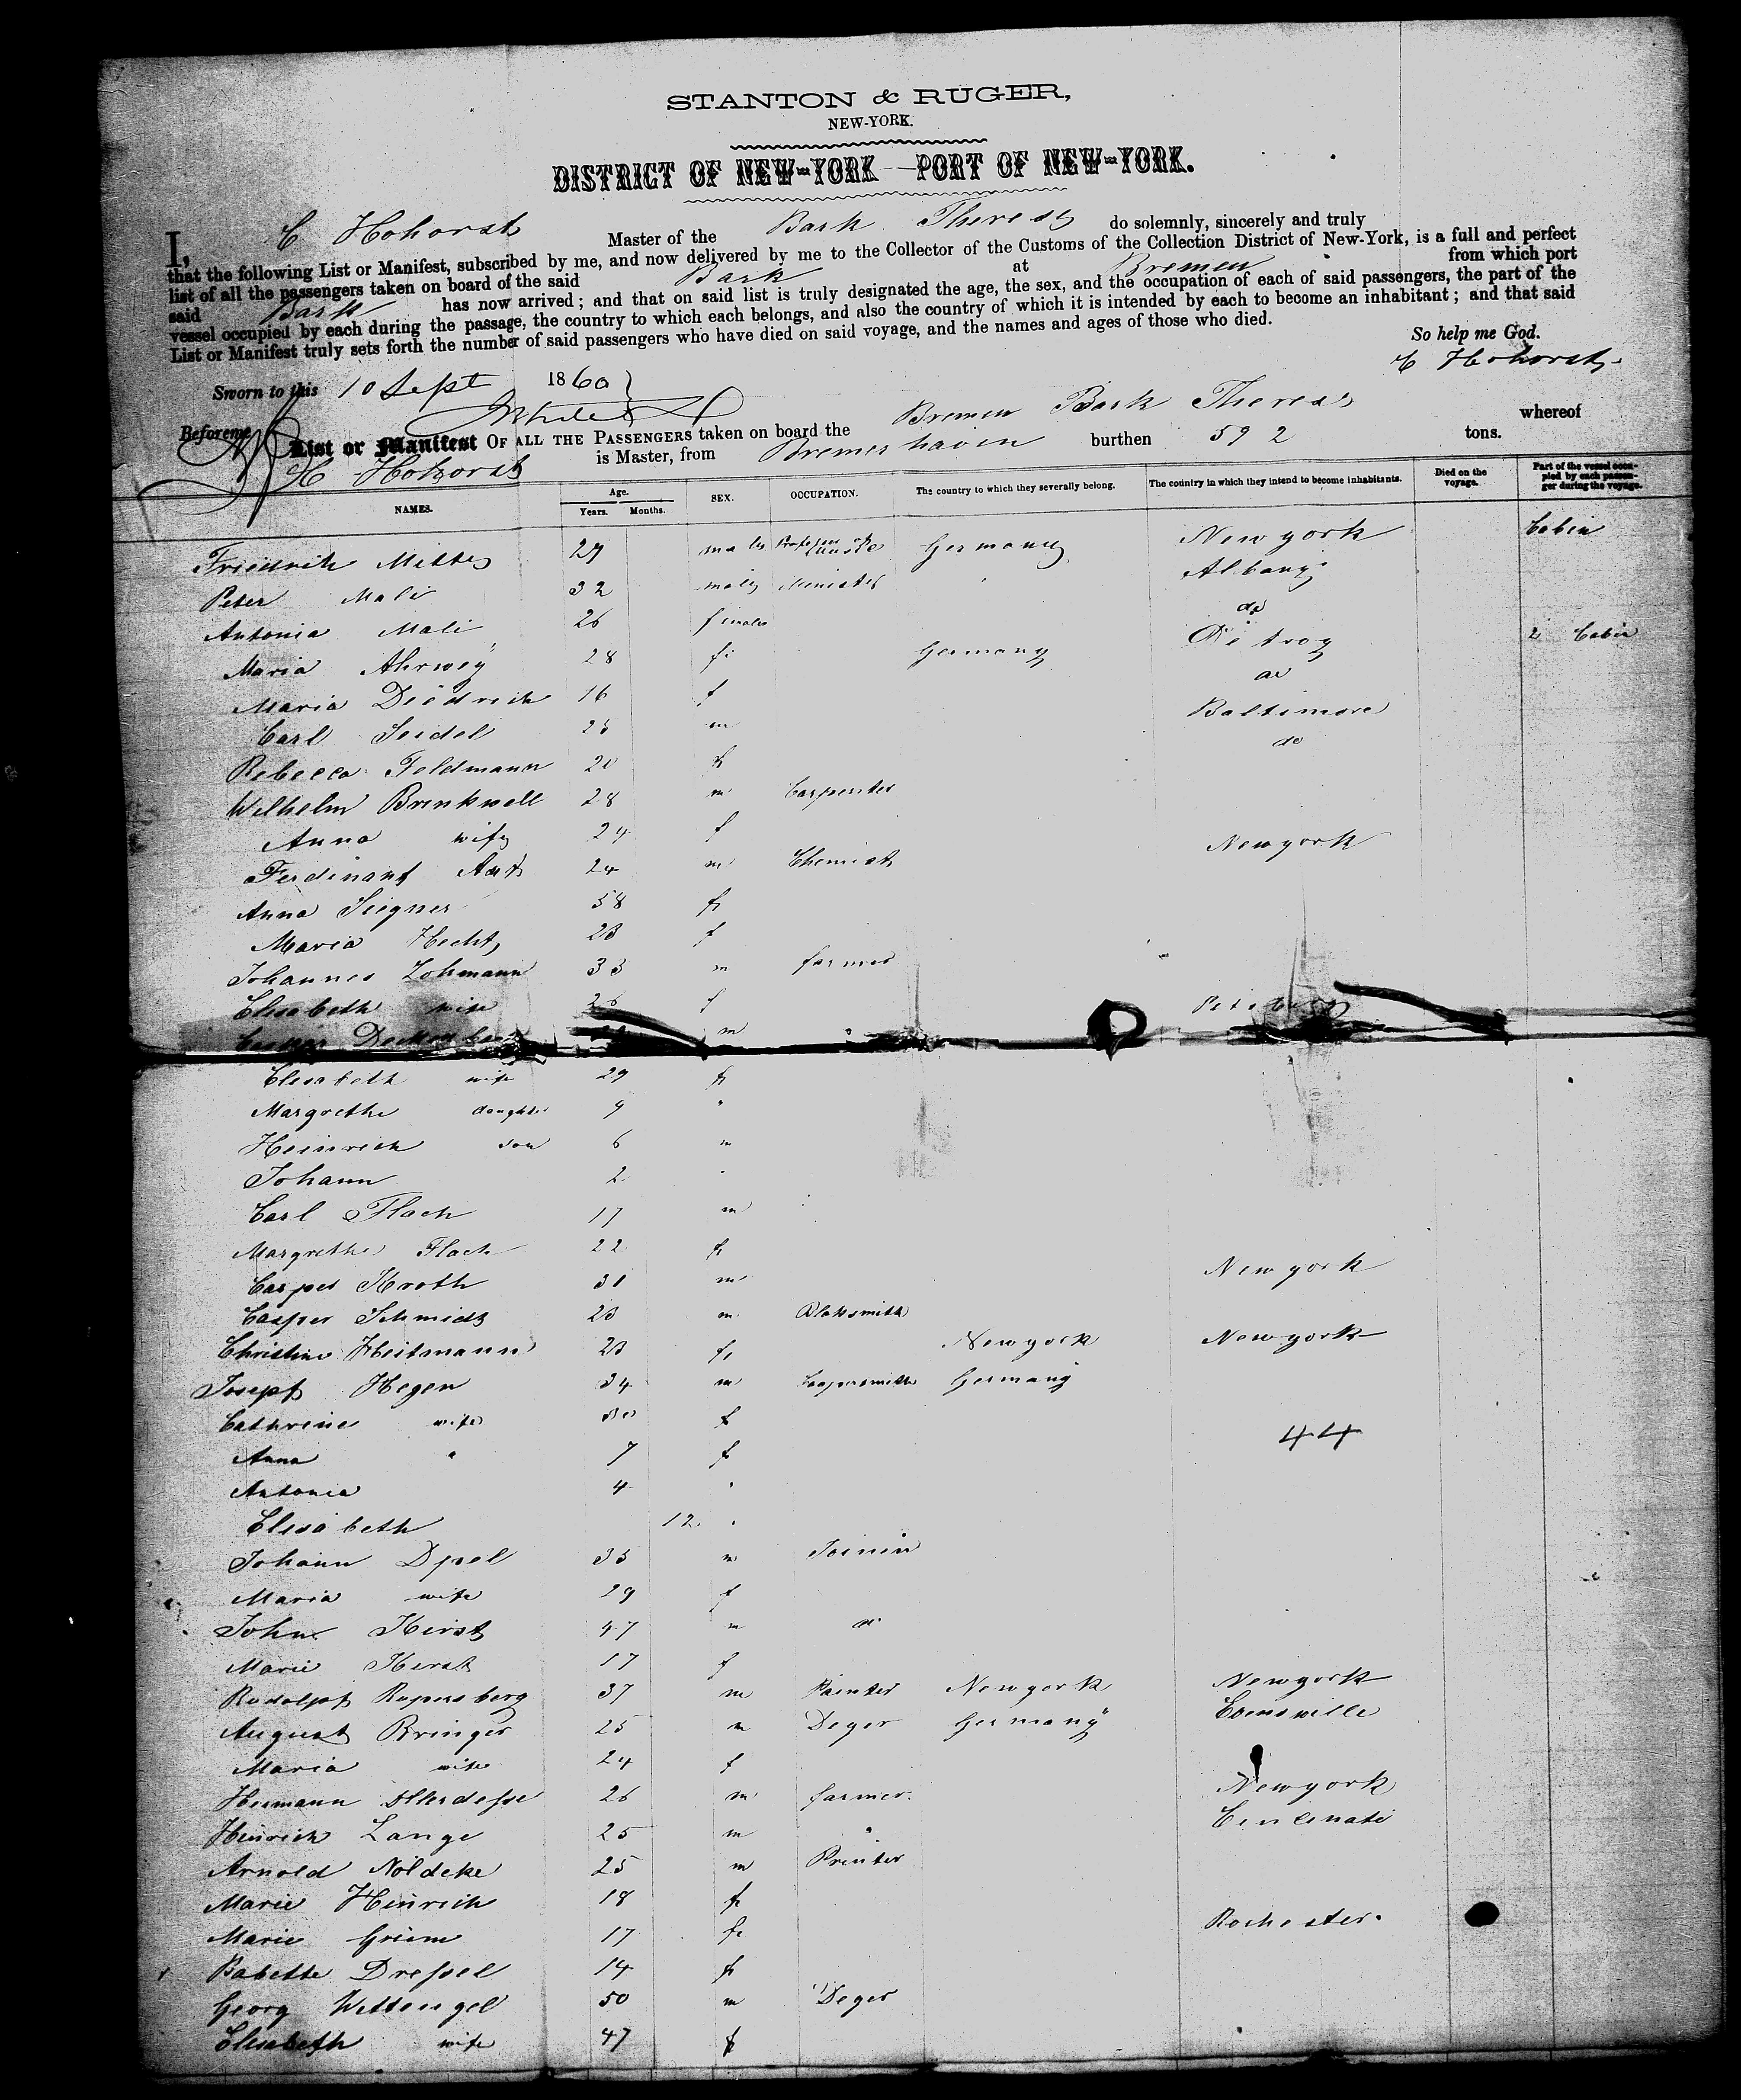 STANTON & RUGER,
NEW-YORK.
DISTRICT OF NEW-YORK—PORT OF NEW-YORK.
I, C Hohorst Master of the Bark Therese do solemnly, sincerely and truly
that the following List or Manifest, subscribed by me, and now delivered by me to the Collector of the Customs of the Collection District of New-York, is a full and perfect
list of all the passengers taken on board of the said Bark at Bremen from which port
said Bark has now arrived; and that on said list is truly designated the age, the sex, and the occupation of each of said passengers, the part of the
vessel occupied by each during the passage, the country to which each belongs, and also the country of which it is intended by each to become an inhabitant; and that said
List or Manifest truly sets forth the number of said passengers who have died on said voyage, and the names and ages of those who died.
So help me God.
C Hohorst
Sworn to this 10 Sept 1860
Before me
List or Manifest OF ALL THE PASSENGERS taken on board the Bremen Bark Therese whereof
C Hohorst is Master, from Bremerhaven burthen 592 tons.
NAMES. Age. Years. Months. SEX. OCCUPATION. The country to which they severally belong. The country in which they intend to become inhabitants. Died on the voyage. Part of the vessel occupied by each passenger during the voyage.
Friedrich 29 male Professor of Germany New york Cabin
Peter Mali 32 male Minister Albany
Antonia Mali 26 female do
Maria 28 fe Germany 2 Cabin
Maria Diedrich 16 f do
Carl Seidel 25 m Baltimore
Rebecca Feldmann 20 fe do
Wilhelm Brinkwell 28 m Carpenter
Anna wife 24 f
Ferdinant 24 m Chemist New york
Anna 58 fe
Maria Hecht 23 f
Johannes Lohmann 33 m farmer
Elisabeth wife 26 f
m
Elisabeth wife 29 fe
Margrethe daughter 9 "
Heinrich son 6 m
Johann 2 "
Carl Flach 17 m
Margrethe Flach 22 fe
Casper Kroth 31 m New york
Casper Schmidt 23 m Blaksmith
Christine Heitmann 23 fe New york New york
Josepf Hegen 34 m Coopersmith Germany
Cathrine wife 30 f
44
Anna " 7 f
Antonia 4 "
Elisabeth 12 "
Johann Dpel 35 m
Maria wife 29 f
John Hirst 47 m
Marie Hirst 17 f
Rudolpf Rupersberg 37 m Painter New york New york
August Bringer 25 m Deger Germany Evensville
Maria wife 24 f
Hermann 26 m farmer New york
Heinrich Lange 25 m " Cincinati
Arnold Nöldeke 25 m Printer
Marie Heinrich 18 fe
Marie Griem 17 fe Rochester
Babette Dressel 14 fe
Georg Wettengel 50 m Deger
Elisabeth wife 47 f